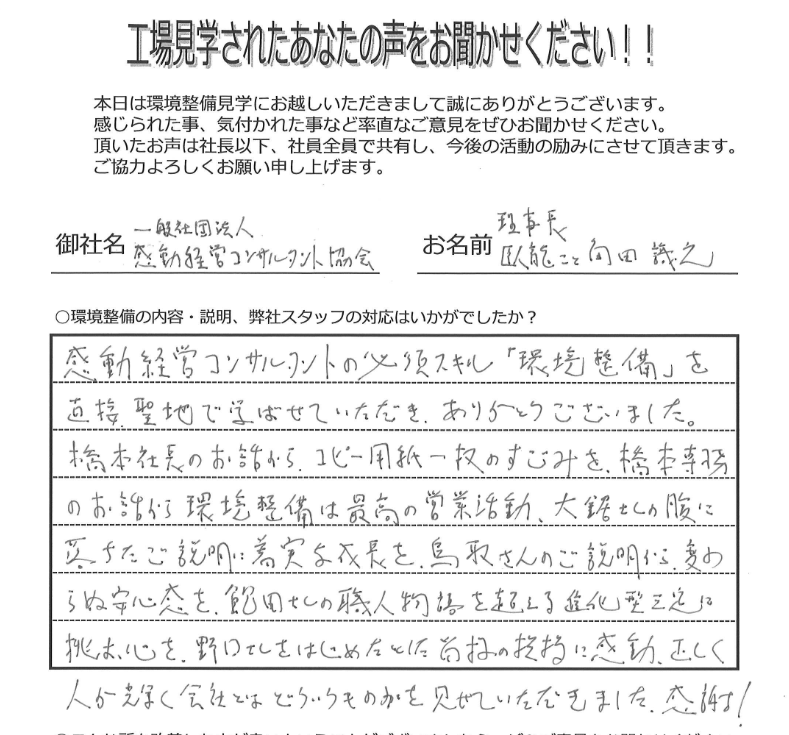 工場見学されたあなたの声をお聞かせください！！
本日は環境整備見学にお越しいただきまして誠にありがとうございます。
感じられた事、気付かれた事など率直なご意見をぜひお聞かせください。
頂いたお声は社長以下、社員全員で共有し、今後の活動の励みにさせて頂きます。
ご協力よろしくお願い申し上げます。
御社名 一般社団法人
感動経営コンサルタント協会
お名前 理事長
臥龍こと 向田 識之
○環境整備の内容・説明、弊社スタッフの対応はいかがでしたか？
感動経営コンサルタントの必須スキル「環境整備」を
直接、聖地で学ばせていただき、ありがとうございました。
橋本社長のお話から、コピー用紙一枚のすごみを、橋本専務
のお話から環境整備は最高の営業活動、大鋸さんの腹に
落ちたご説明に着実な成長を、鳥取さんのご説明から、変わ
らぬ安心感を、飽田さんの職人物語を超える進化型三定に
挑む心を、野口さんをはじめとした皆様の挨拶に感動、正しく
人が輝く会社とはどういうものかを見せていただきました。感謝！